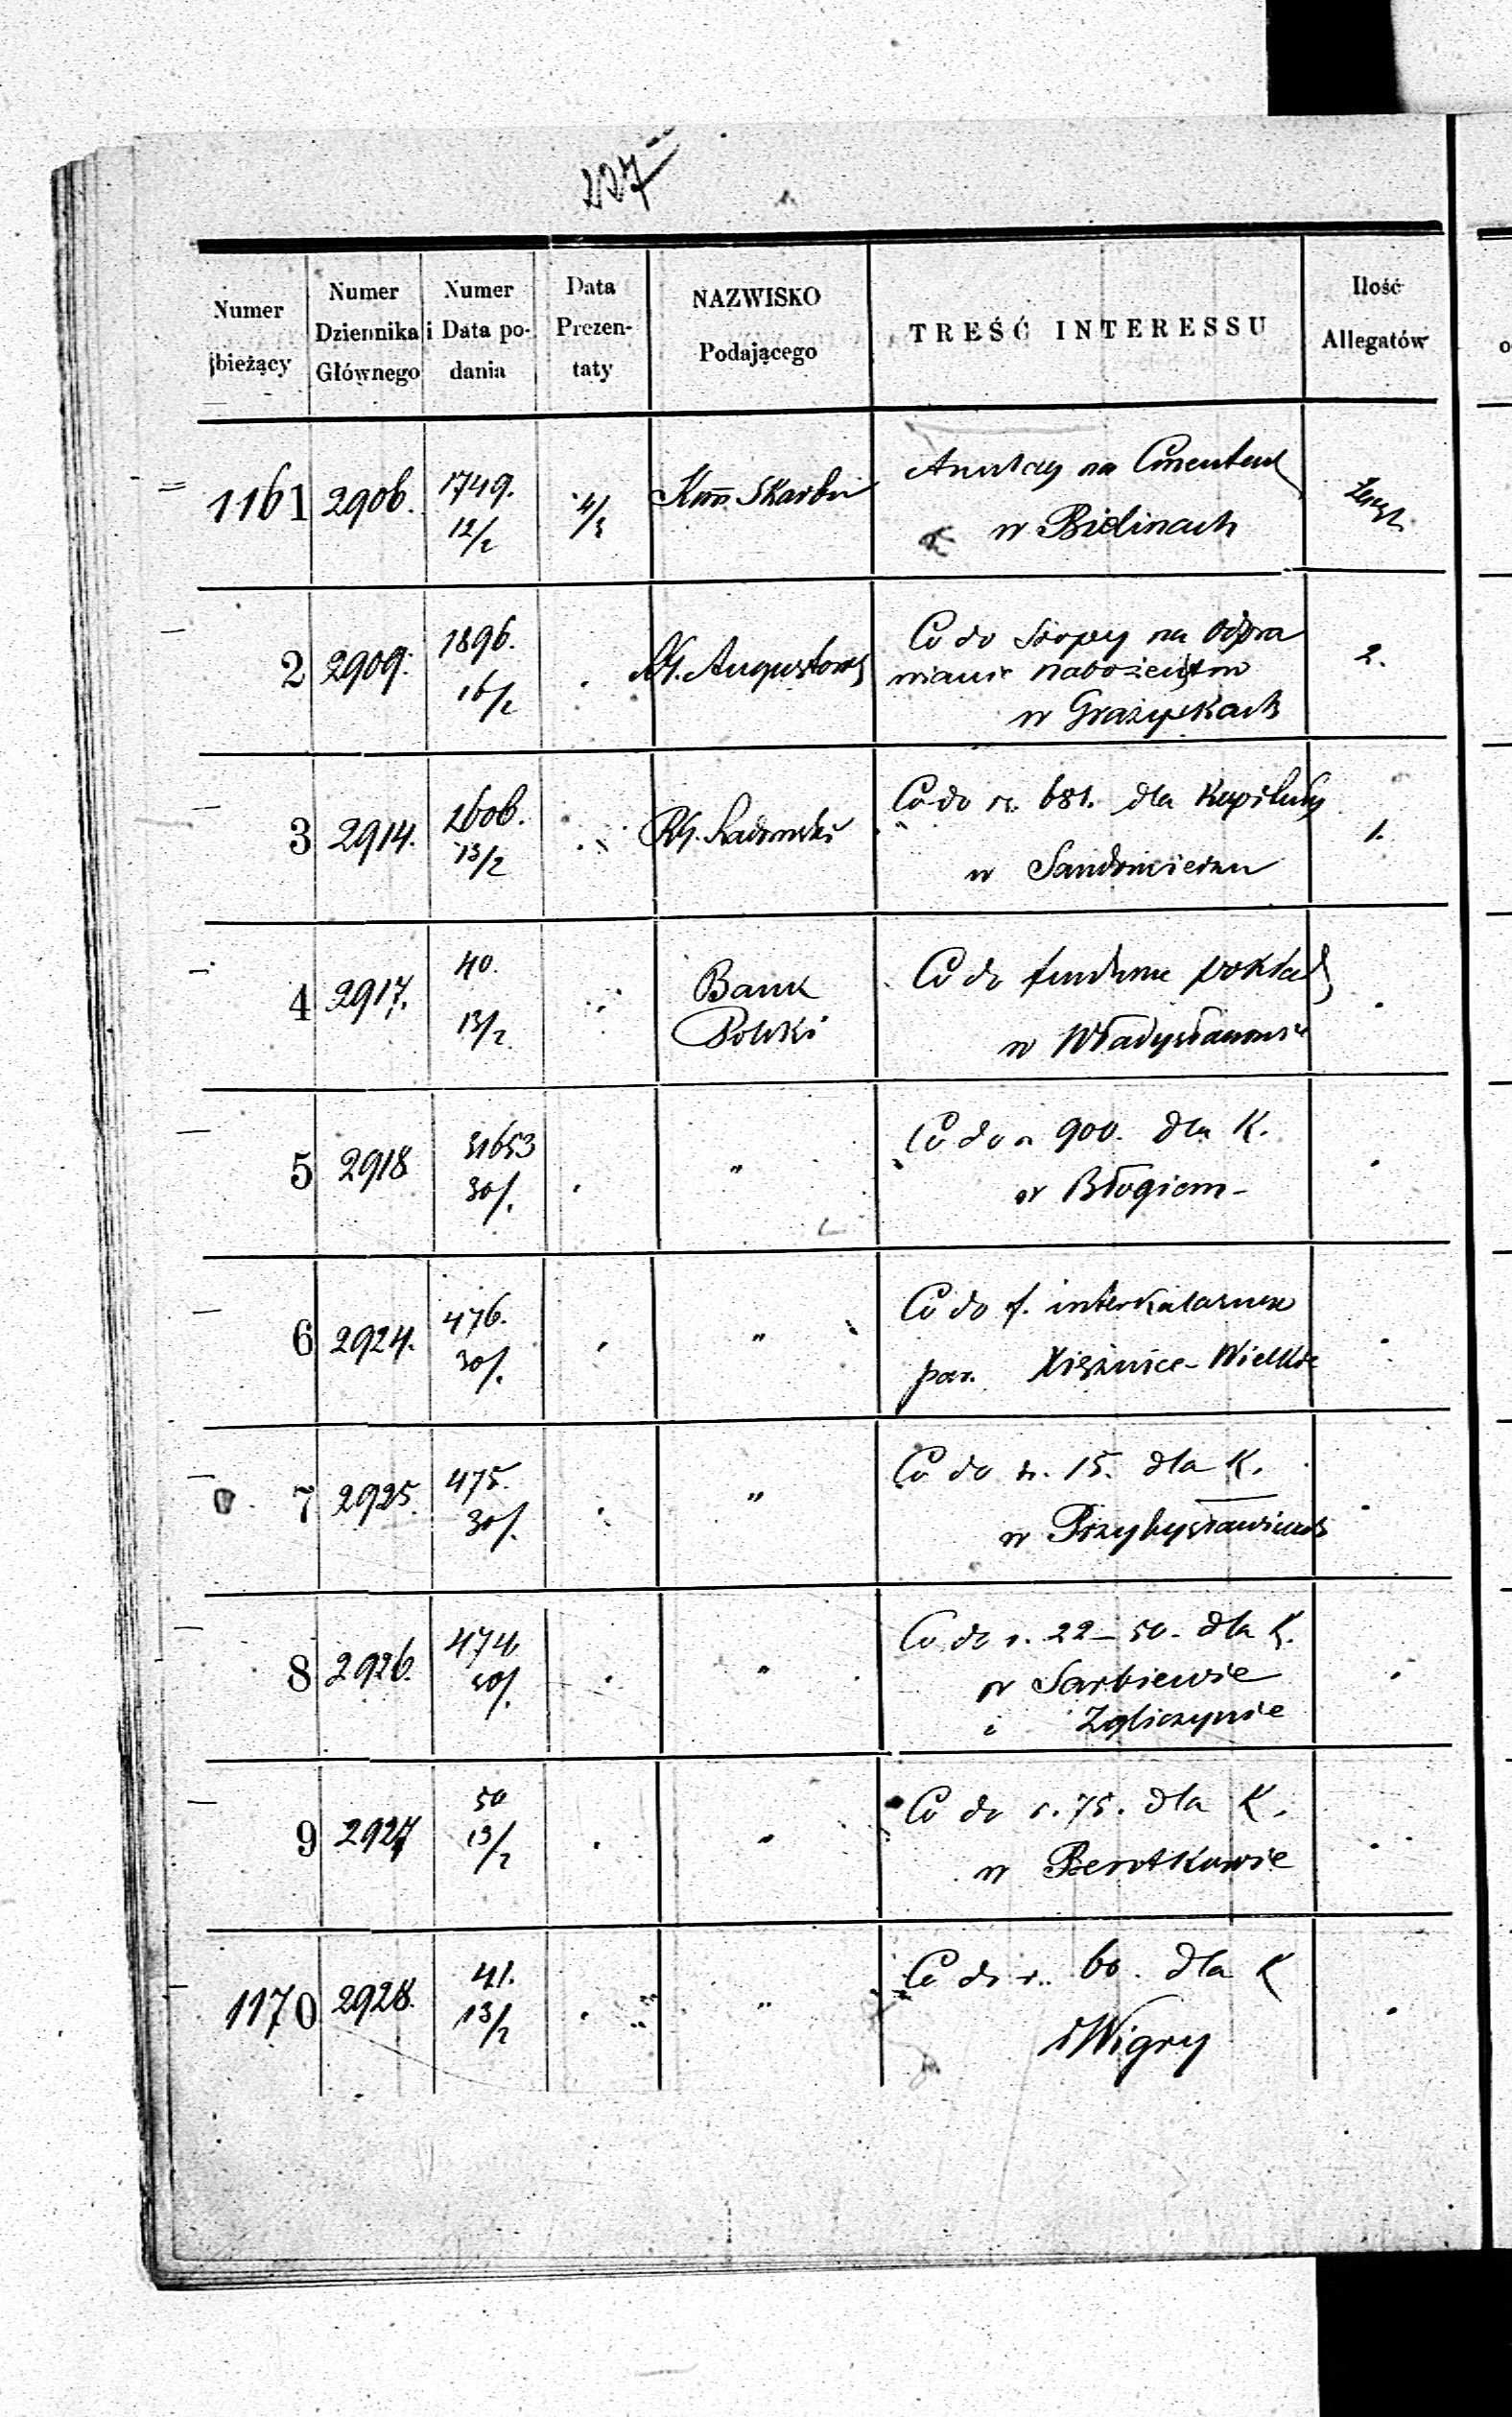 207
Numer bieżący
Numer Dziennika Głównego
Numer i Data podania
Data Prezentaty
NAZWISKO Podającego
TREŚĆ INTERESSU
Ilość Allegatów
1161 2906. 1749. 12/2 4/3 Kom Skarbu
na Cmentarz
w Bielinach
2 2909. 1896. 16/2 . RG. Augustows 2.
Co do szopy na odpra
wianie nabożeństw
w Grażyszkach
3 2914. 2606. 13/2 . RG. Radomski 1.
Co do rs. 681. dla Kapituły
w Sandomierzu
4 2917. 40. 13/2 Bank Polski .
Co do fundusu pokład
w Władysławowie
5 2918 31653 30/1. . " .
Co do r 900. dla K.
w Błogiem -
6 2924. 476. 30/1. . " .
Co do f. interkalarnex
par. Xiężnice - Wielkie
7 2925. 475. 30/1. . " .
Co do r. 15. dla K.
w Przybysławicach
8 2926. 474 30/1. . " .
Co do r. 22 - 50. dla K.
w Sarbiewie
i Zgliczynie
9 2927 50 13/2 . " .
Co do r. 75. dla K.
w
1170 2928. 41. 13/2 . " .
Co do r. 60. dla K
Wigry